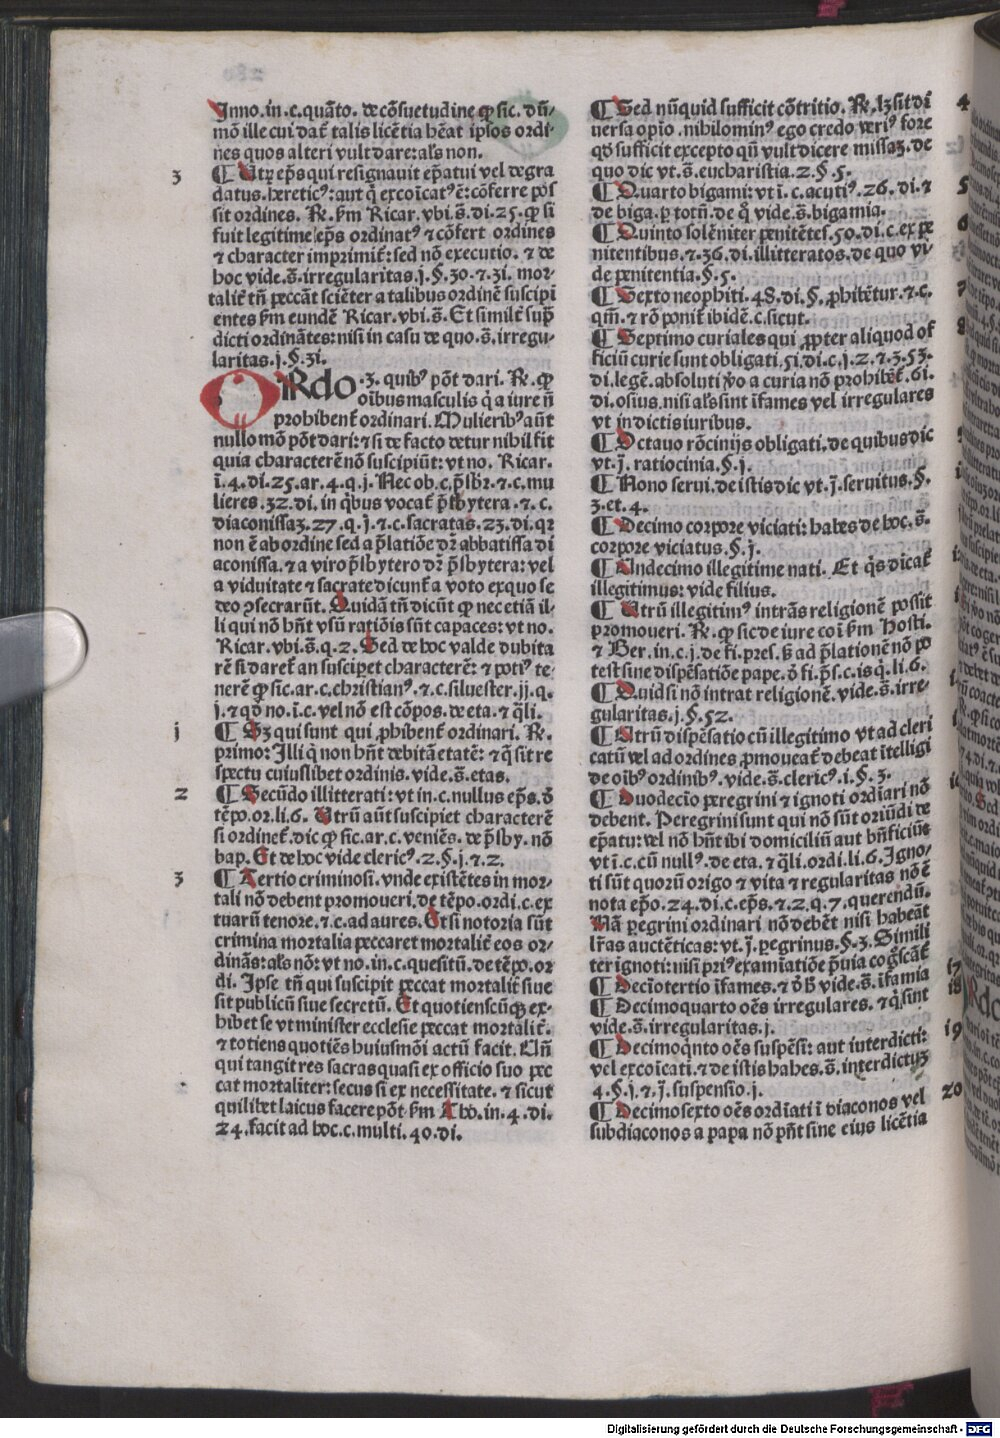 Inno. in. c. quāto. de cōsuetudine ꝙ sic. dū-
mō ille cui dat̄ talis licētia hēat ipsos ordi-
nes quos alteri vult dare: als non.
3 ¶ Utꝝ ep̄s qui resignauit ep̄atui vel degra
datus. hereticꝰ: aut q̄ excōicatꝰ ē: cōferre pos
sit ordines. R̄. ẜm Ricar. vbi. s̄. di. 25. ꝙ si
fuit legitime ep̄s ordinatꝰ ⁊ cōfert ordines
⁊ character imprimit̄: sed nō executio. ⁊ de
hoc vide. s̄. irregularitas. j. §. 30. ⁊. 31. mor-
talit̄ tn̄ peccāt sciēter a talibus ordinē suscipi
entes ẜm eundē Ricar. vbi. s̄. Et similit̄ sup̄
dicti ordinātes: nisi in casu de quo. s̄. irregu-
laritas. j. §. 3i.
ORdo .3. quibꝰ pōt dari. R̄. ꝙ
oībus masculis q̄ a iure n̄
prohibent̄ ordinari. Mulieribꝰ aūt
nullo mō pōt dari: ⁊ si de facto detur nihil fit
quia characterē nō suscipiūt: vt no. Ricar.
ī. 4. di. 25. ar. 4. q. j. Nec ob. c. p̄sbr̄. ⁊ c. mu
lieres. 32. di. in q̄bus vocat̄ p̄sbytera. ⁊ c.
diaconissaꝫ. 27. q. j̄. ⁊ c. sacratas. 23. di. qꝛ
non ē ab ordine sed a p̄latiōe dr̄ abbatissa di
aconissa. ⁊ a viro p̄sbytero dr̄ p̄sbytera: vel
a viduitate ⁊ sacrate dicunt̄ a voto ex quo se
deo ꝯsecrarūt. Quidā tn̄ dicūt ꝙ nec etiā il-
li qui nō hn̄t vsū ratiōis sūt capaces: vt no.
Ricar. vbi. s̄. q. 2. Sed de hoc valde dubita
rē si daret̄ an susciperet characterē: ⁊ potiꝰ te-
nerē ꝙ sic. ar. c. christianꝰ. ⁊ c. siluester. ij. q.
j. ⁊ qđ no. ī. c. vel nō est cōpos. de eta. ⁊ q̄li.
j ¶ Sꝫ qui sunt qui ꝓhibent̄ ordinari. R̄.
primo: Illi q̄ non hn̄t debitā etatē: ⁊ q̄ sit re
spectu cuiuslibet ordinis. vide. s̄. etas.
2 ¶ Secūdo illitterati: vt in. c. nullus ep̄s. ō
tēpo. or. li. 6. Utrū aūt suscipiet characterē
si ordinet̄. dic ꝙ sic. ar. c. veniēs. de p̄sby. nō
bap. Et de hoc vide clericꝰ. 2. §. j. ⁊. 2.
3 ¶ Tertio criminosi. vnde existētes in mor-
tali nō debent promoueri. de tēpo. ordi. c. ex
tuarū tenore. ⁊ c. ad aures. Et si notoria sūt
crimina mortalia peccaret mortalit̄ eos or-
dinās: als nō: vt no. in. c. quesitū. de tēpo. or
di. Ipse tn̄ qui suscipit peccat mortalit̄ siue
sit publicū siue secretū. Et quotienscūqꝫ ex-
hibet se vt minister ecclesie peccat mortalit̄.
⁊ totiens quotiēs huiusmōi actū facit. Uñ
qui tangit res sacras quasi ex officio suo pec
cat mortaliter: secus si ex necessitate. ⁊ sicut
quilibet laicus facere pōt ẜm Tho. in. 4. di.
24. facit ad hoc. c. multi. 40. di.
¶ Sed nūquid sufficit cōtritio. R̄. lꝫ sit di
uersa opio. nihilominꝰ ego credo veriꝰ fore
qđ sufficit excepto qn̄ vult dicere missaꝫ. de
quo dic vt. s̄. eucharistia. 2. §. 5.
¶ Quarto bigami: vt ī. c. acutiꝰ. 26. di. ⁊
de biga. ꝑ totū. de q̄ vide. s̄. bigamia.
¶ Quinto solēniter penitētes. 50. di. c. ex pe
nitentibus. ⁊. 36. di. illitteratos. de quo vi-
de penitentia. §. 5.
¶ Sexto neophiti. 48. di. §. ꝓhibētur. ⁊. c.
qm̄. ⁊ rō ponit̄ ibidē. c. sicut.
¶ Septimo curiales qui ꝓpter aliquod of
ficiū curie sunt obligati. 5i. di. c. j. 2. ⁊. 3. 53.
di. legē. absoluti v̄o a curia nō prohibēt̄. 6i.
di. osius. nisi als sint īfames vel irregulares
vt in dictis iuribus.
¶ Octauo rōcinijs obligati. de quibus dic
vt. j̄. ratiocinia. §. j.
¶ Nono serui. de istis dic vt. j̄. seruitus. §.
3. et. 4.
¶ Decimo corpore viciati: habes de hoc. s̄.
corpore viciatus. §. j.
¶ Undecimo illegitime nati. Et q̄s dicat̄
illegitimus: vide filius.
¶ Utrū illegitimꝰ intrās religionē possit
promoueri. R̄. ꝙ sic de iure cōi ẜm Hosti.
⁊ Ber. in. c. j. de fi. pres. ß ad p̄lationē nō po
test sine dispēsatiōe pape. ō fi. p̄s. c. is q̄. li. 6.
¶ Quid si nō intrat religionē. vide. s̄. irre-
gularitas. j. §. 52.
¶ Utrū dispēsatio cū illegitimo vt ad cleri
catū vel ad ordines ꝓmoueat̄ debeat ītelligi
de oībꝰ ordinibꝰ. vide. s̄. clericꝰ. i. §. 3.
¶ Duodecīo peregrini ⁊ ignoti ordīari nō
debent. Peregrini sunt qui nō sūt oriūdi de
ep̄atu: vel nō hn̄t ibi domiciliū aut bn̄ficiū
vt ī. c. cū nullꝰ. de eta. ⁊ q̄li. ordi. li. 6. Igno-
ti sūt quorū origo ⁊ vita ⁊ regularitas nō ē
nota ep̄o. 24. di. c. ep̄s. ⁊. 2. q. 7. querendū.
Nā ꝑegrini ordinari nō debēt nisi habeāt
lr̄as auctēticas: vt. j̄. ꝑegrinus. §. 3. Simili
ter ignoti: nisi priꝰ examīatiōe p̄uia cog̃scāt̄
¶ Decīo tertio īfames. ⁊ ō h̄ vide. s̄. īfamia
¶ Decimoquarto oēs irregulares. ⁊ q̄ sint
vide. s̄. irregularitas. j.
¶ Decimoq̄nto oēs suspēsi: aut interdicti:
vel excōicati. ⁊ de istis habes. s̄. interdictuꝫ
4. §. j. ⁊. j̄. suspensio. j.
¶ Decimosexto oēs ordīati ī diaconos vel
subdiaconos a papa nō pn̄t sine eius licētia
Digitalisierung gefördert durch die Deutsche Forschungsgemeinschaft - DFG